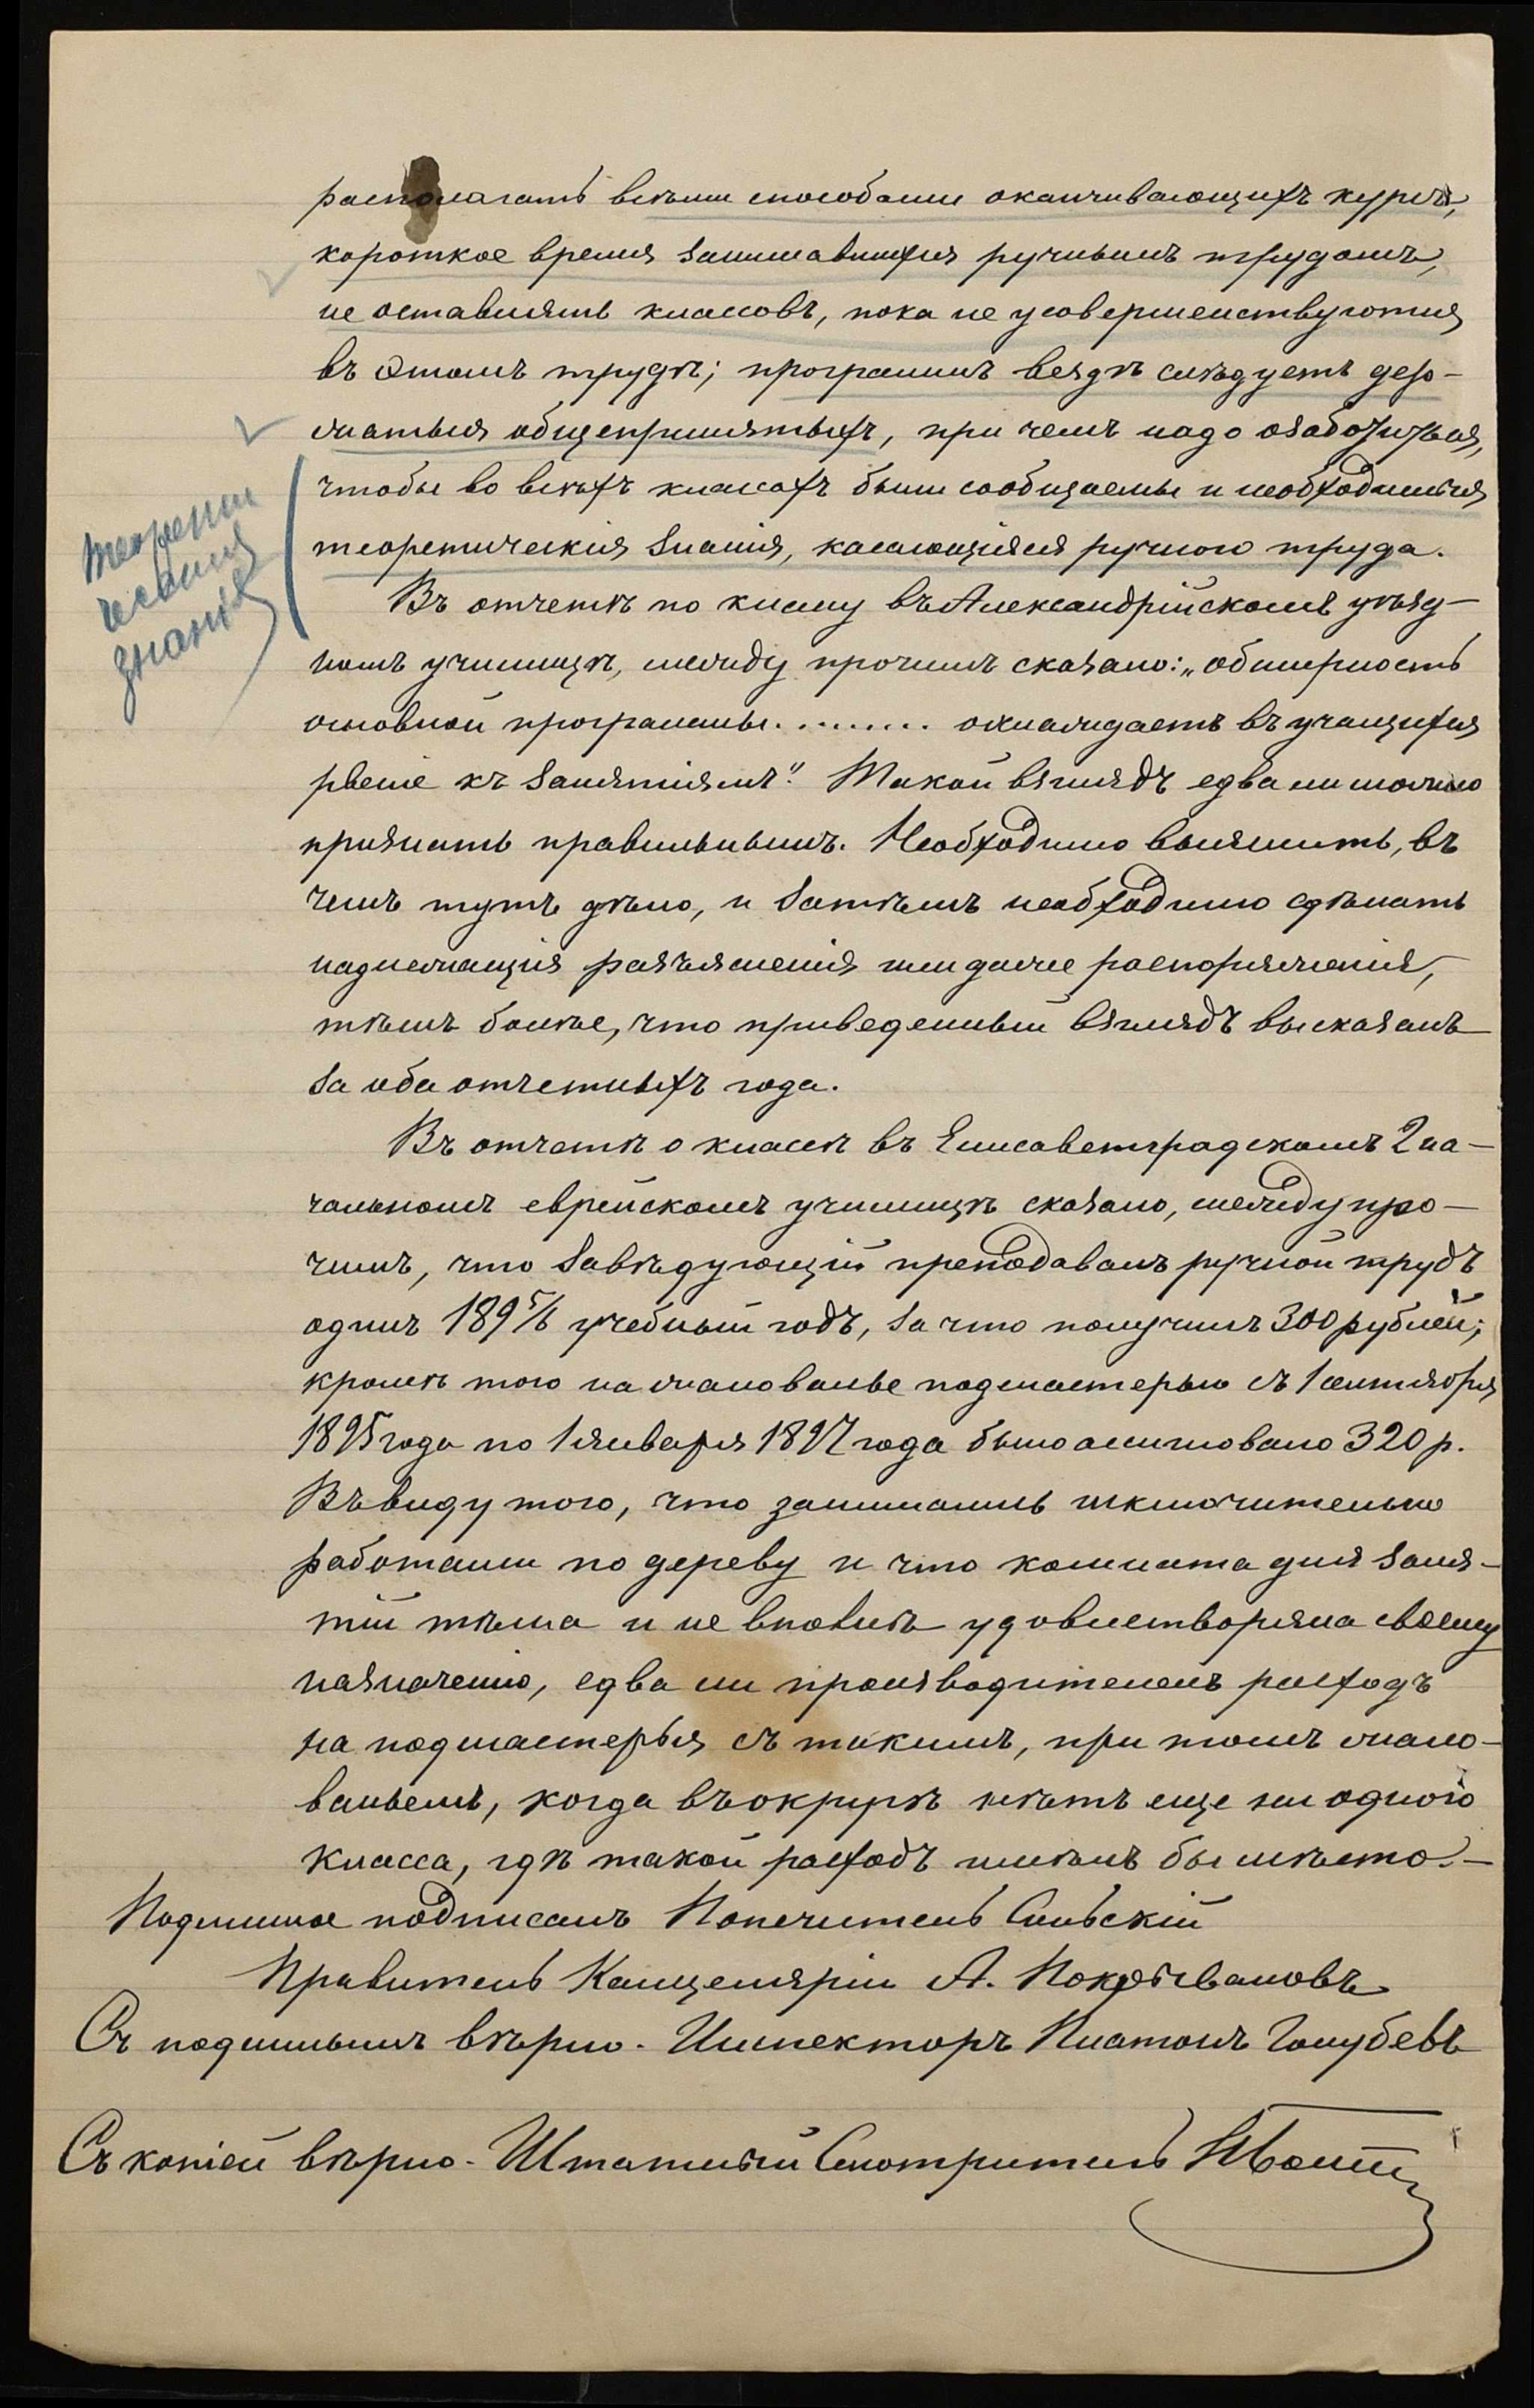 располагать всѣми способами оканчивающихъ курсъ,
короткое время занимавшихся ручнымъ трудомъ,
не оставлять классовъ, пока не усовершенствуются
въ этомъ трудѣ; программъ вездѣ слѣдуетъ дер-
жаться общепринятыхъ, при чемъ надо озаботиться,
чтобы во всѣхъ классахъ были сообщаемы и необходимыя
теоретическія знанія, касающіяся ручного труда.
теорети
ческия
знанія
Въ отчетѣ по классу въ Александрійскомъ уѣзд-
номъ училищѣ, между прочимъ сказано: „обширность
основной программы......... охлаждаетъ въ учащихся
рвеніе къ занятіямъ". Такой взглядъ едва ли можно
признать правильнымъ. Необходимо выяснить, въ
чемъ тутъ дѣло, и затѣмъ необходимо сдѣлать
надлежащія разъясненія или даже распоряженія,
тѣмъ болѣе, что приведенный взглядъ высказанъ
за оба отчетныхъ года.
Въ отчетѣ о классѣ въ Елисаветградскомъ 2 на-
чальномъ еврейскомъ училищѣ сказано, между про-
чимъ, что завѣдующій преподавалъ ручной трудъ
одинъ 1895/6 учебный годъ, за что получилъ 300 рублей;
кромѣ того на жалованье подмастерью съ 1 сентября
1895 года по 1 января 1897 года было ассигновано 320 р.
Въ виду того, что занимались исключительно
работами по дереву и что комната для заня-
тій тѣсна и не вполнѣ удовлетворяла своему
назначенію, едва ли производителенъ расходъ
на подмастерья съ такимъ, при томъ жало-
ваньемъ, когда въ округѣ нѣтъ еще ни одного
класса, гдѣ такой расходъ имѣлъ бы мѣсто.-
Подлинное подписалъ Попечитель Сольскій
Правитель Канцеляріи А.
Съ подлиннымъ вѣрно. Инспекторъ Платонъ Голубевъ
Съ копіей вѣрно. Штатный Смотритель